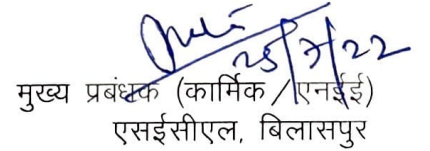 25/7/22
मुख्य प्रबंधक (कार्मिक/एनईई)
एसईसीएल, बिलासपुर